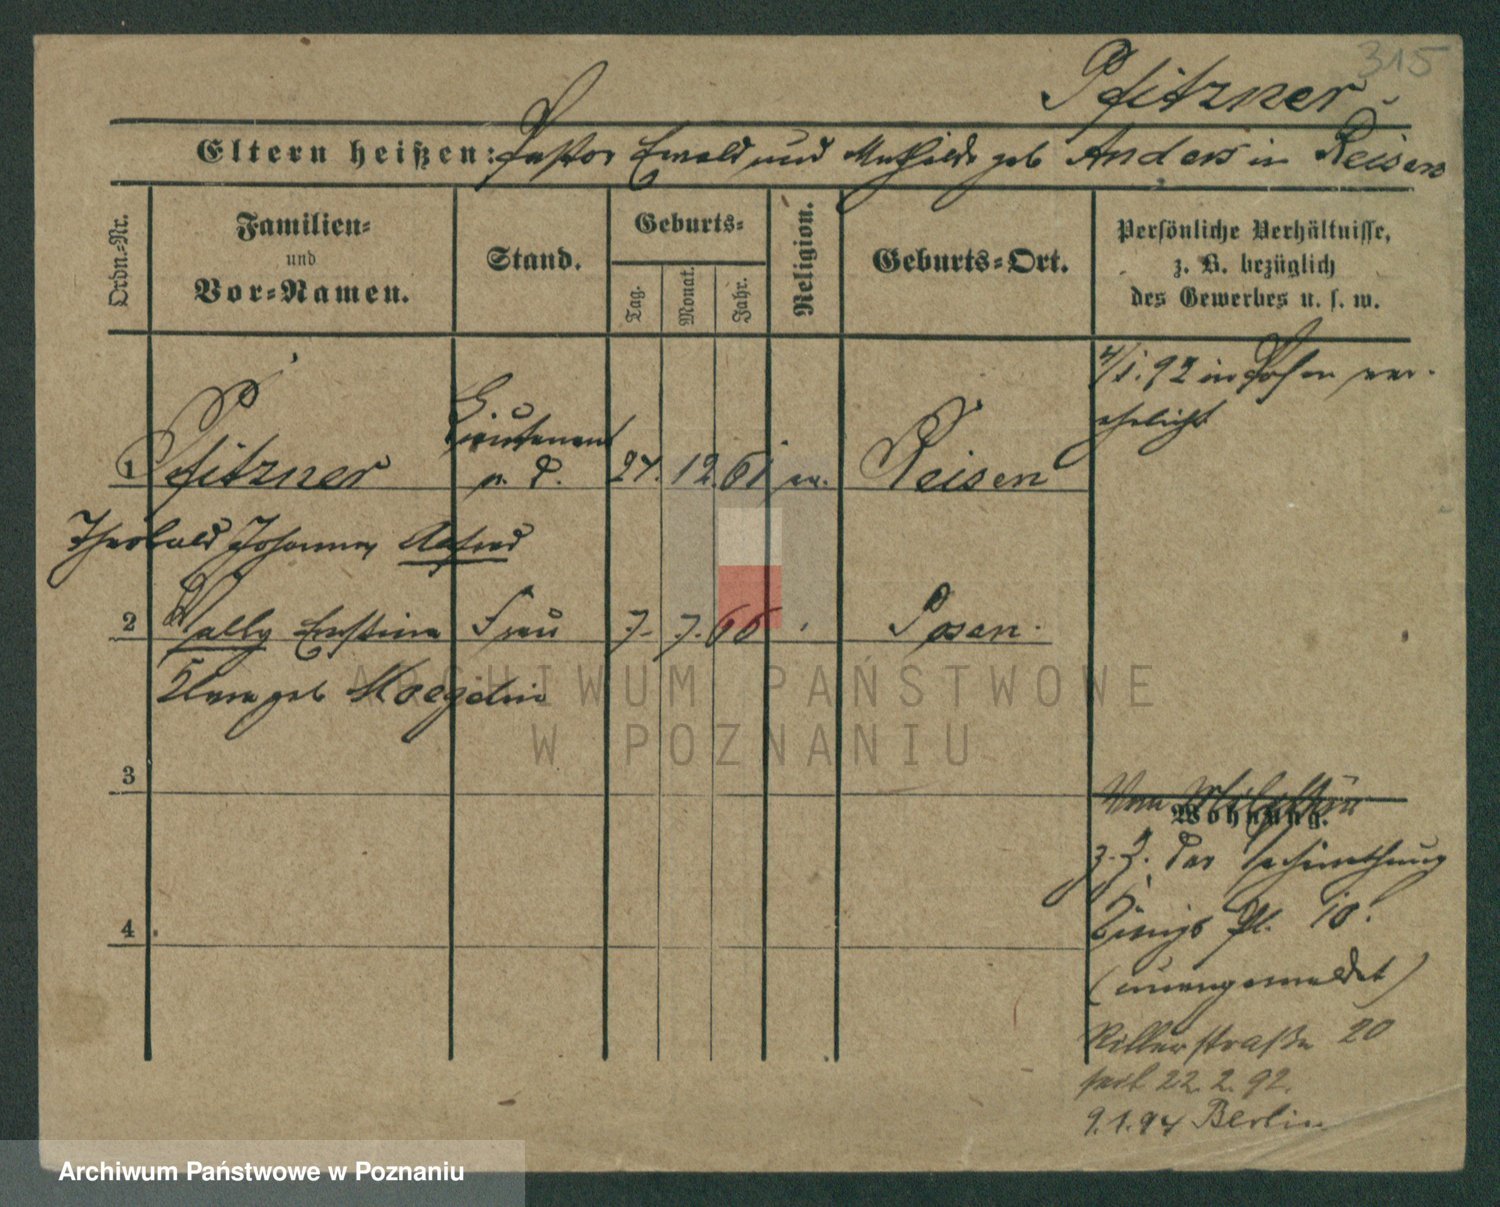 315
Pfitzner
Eltern heißen: Pastor Ewald und Mathilde geb Anders in Reisen
Ordn.-Nr.
Familien-
und
Vor-Namen.
Stand.
Geburts-
Tag.
Monat.
Jahr.
Religion.
Geburts-Ort.
Persönliche Verhältnisse,
z. B. bezüglich
des Gewerbes u. s. w.
4/1. 92 in Posen ver-
ehelicht
1 Pfitzner Lieutenant a. D. 24. 12. 61 ev. Reisen
Theobald Johannes Alfred
2 Wally Ernstine Frau 7. 7. 66 Posen.
Clara geb
3
4
Vom Militär
Wohnung.
z. Z. der
Königs Pl. 10.
Ritterstraße 20
seit 22. 2. 92.
9.1.94 Berlin
ARCHIWUM PAŃSTWOWE
W POZNANIU
Archiwum Państwowe w Poznaniu